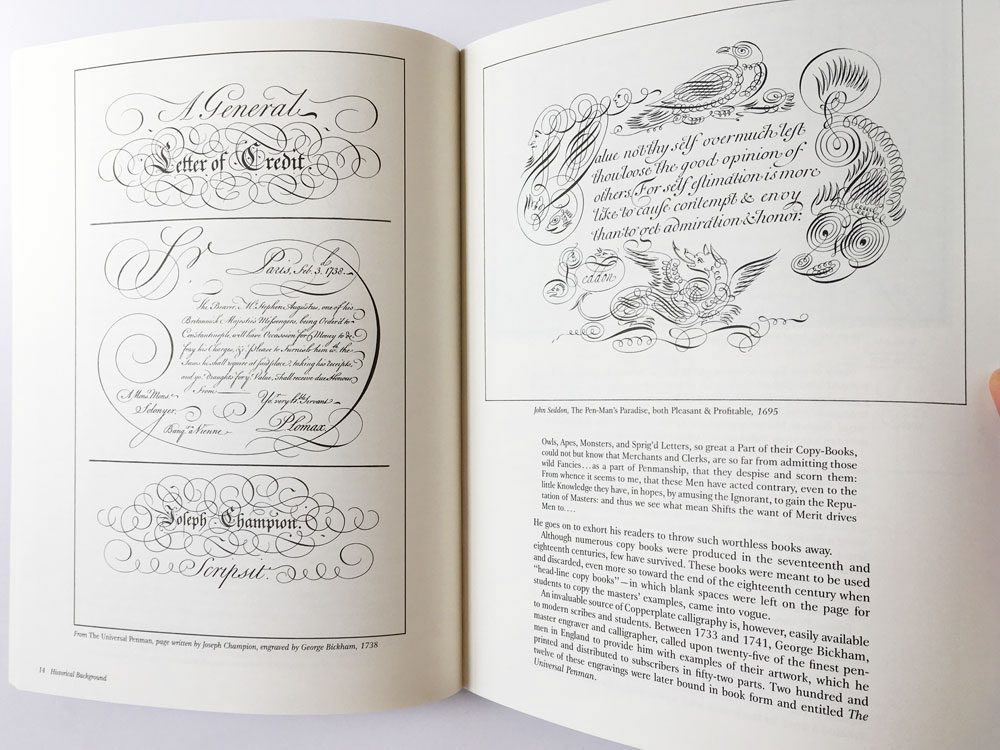 A General
Letter of Credit.
Sr.
Paris, Feb. 3d. 1738.
The Bearer Mr. Stephen Augustus, one of his
Britannick Majestie's Messengers, being Order'd to
Constantinople, will have Occasion for Money to de
fray his Charges, & please to furnish him wth. the
Sum he shall require at said place, taking his receipts,
and yo. Draughts for ye. Value, shall receive due Honour
From
Yor. very hble. Servant
A Monsr. Monsr.
Solonyer.
Banqr. a Vienne
Plomax
Joseph Champion.
Scripsit.
From The Universal Penman, page written by Joseph Champion, engraved by George Bickham, 1738
14 Historical Background
Value not thy self overmuch lest
thou loose the good opinion of
others. For self estimation is more
like to cause contempt & envy
than to get admiration & honor.
Seddon
John Seddon, The Pen-Man's Paradise, both Pleasant & Profitable, 1695
Owls, Apes, Monsters, and Sprig'd Letters, so great a Part of their Copy-Books,
could not but know that Merchants and Clerks, are so far from admitting those
wild Fancies . . . as a part of Penmanship, that they despise and scorn them:
From whence it seems to me, that these Men have acted contrary, even to the
little Knowledge they have, in hopes, by amusing the Ignorant, to gain the Repu-
tation of Masters: and thus we see what mean Shifts the want of Merit drives
Men to . . . .
He goes on to exhort his readers to throw such worthless books away.
Although numerous copy books were produced in the seventeenth and
eighteenth centuries, few have survived. These books were meant to be used
and discarded, even more so toward the end of the eighteenth century when
"head-line copy books"—in which blank spaces were left on the page for
students to copy the masters' examples, came into vogue.
An invaluable source of Copperplate calligraphy is, however, easily available
to modern scribes and students. Between 1733 and 1741, George Bickham,
master engraver and calligrapher, called upon twenty-five of the finest pen-
men in England to provide him with examples of their artwork, which he
printed and distributed to subscribers in fifty-two parts. Two hundred and
twelve of these engravings were later bound in book form and entitled The
Universal Penman.